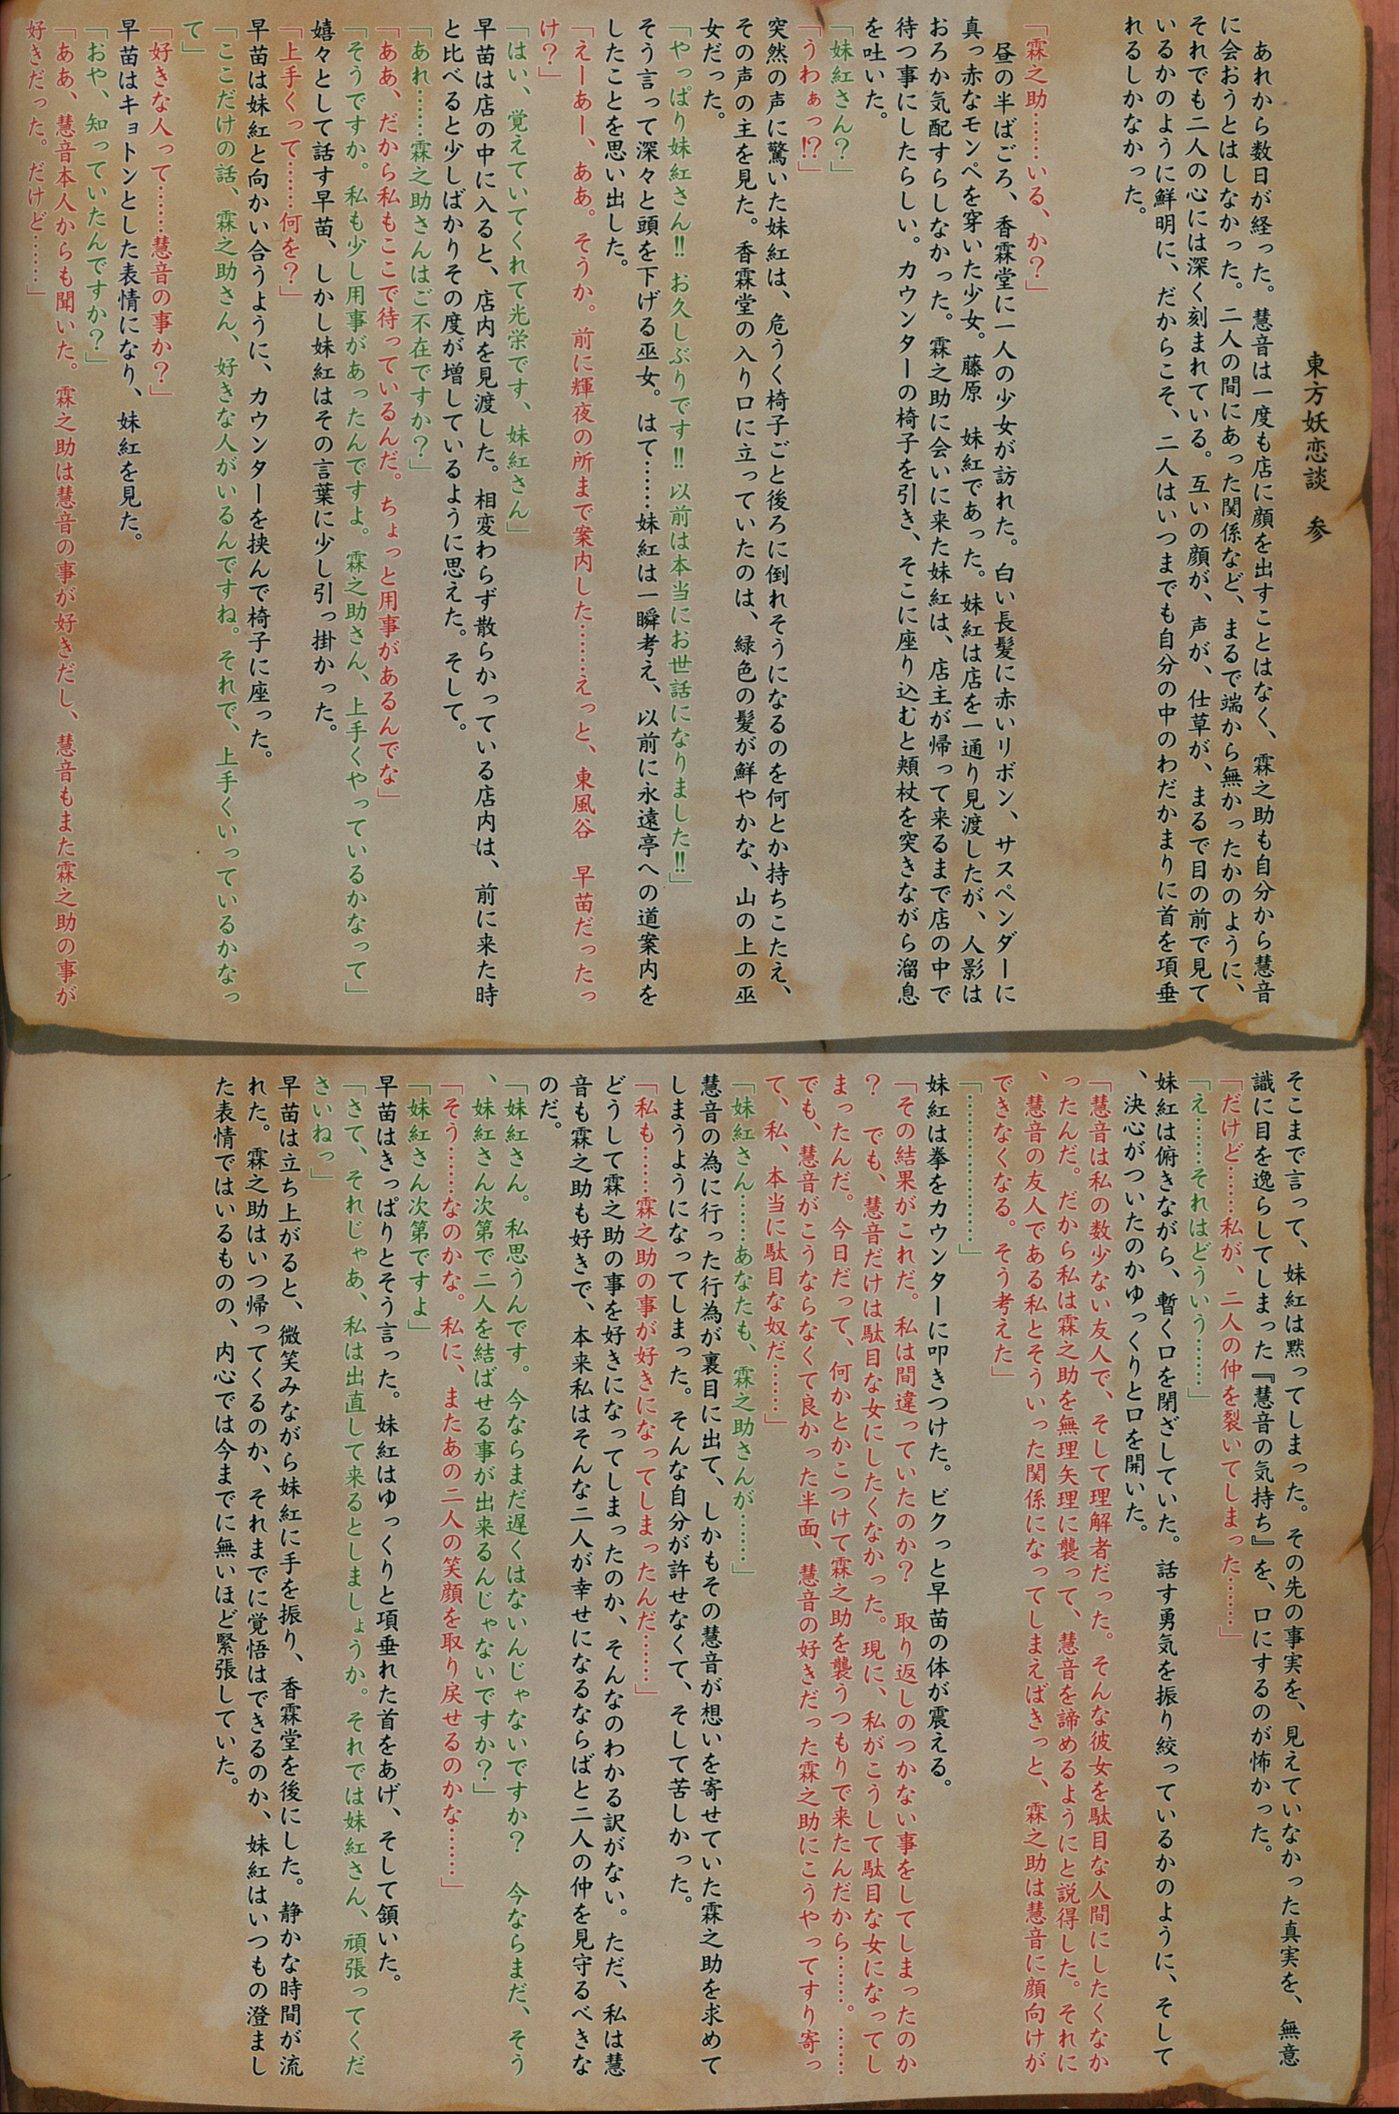 東方妖恋談　参
あれから数日が経った。慧音は一度も店に顔を出すことはなく、霖之助も自分から慧音
に会おうとはしなかった。二人の間にあった関係など、まるで端から無かったかのように、
それでも二人の心には深く刻まれている。互いの顔が、声が、仕草が、まるで目の前で見て
いるかのように鮮明に、だからこそ、二人はいつまでも自分の中のわだかまりに首を項垂
れるしかなかった。
「霖之助……いる、か？」
昼の半ばごろ、香霖堂に一人の少女が訪れた。白い長髪に赤いリボン、サスペンダーに
真っ赤なモンペを穿いた少女。藤原　妹紅であった。妹紅は店を一通り見渡したが、人影は
おろか気配すらしなかった。霖之助に会いに来た妹紅は、店主が帰って来るまで店の中で
待つ事にしたらしい。カウンターの椅子を引き、そこに座り込むと頬杖を突きながら溜息
を吐いた。
「妹紅さん？」
「うわぁっ!?」
突然の声に驚いた妹紅は、危うく椅子ごと後ろに倒れそうになるのを何とか持ちこたえ、
その声の主を見た。香霖堂の入り口に立っていたのは、緑色の髪が鮮やかな、山の上の巫
女だった。
「やっぱり妹紅さん!! お久しぶりです!! 以前は本当にお世話になりました!!」
そう言って深々と頭を下げる巫女。はて……妹紅は一瞬考え、以前に永遠亭への道案内を
したことを思い出した。
「えーあー、ああ。そうか。前に輝夜の所まで案内した……えっと、東風谷　早苗だったっ
け？」
「はい、覚えていてくれて光栄です、妹紅さん」
早苗は店の中に入ると、店内を見渡した。相変わらず散らかっている店内は、前に来た時
と比べると少しばかりその度が増しているように思えた。そして。
「あれ……霖之助さんはご不在ですか？」
「ああ、だから私もここで待っているんだ。ちょっと用事があるんでな」
「そうですか。私も少し用事があったんですよ。霖之助さん、上手くやっているかなって」
嬉々として話す早苗、しかし妹紅はその言葉に少し引っ掛かった。
「上手くって……何を？」
早苗は妹紅と向かい合うように、カウンターを挟んで椅子に座った。
「ここだけの話、霖之助さん、好きな人がいるんですね。それで、上手くいっているかなっ
て」
「好きな人って……慧音の事か？」
早苗はキョトンとした表情になり、妹紅を見た。
「おや、知っていたんですか？」
「ああ、慧音本人からも聞いた。霖之助は慧音の事が好きだし、慧音もまた霖之助の事が
好きだった。だけど……」
そこまで言って、妹紅は黙ってしまった。その先の事実を、見えていなかった真実を、無意
識に目を逸らしてしまった『慧音の気持ち』を、口にするのが怖かった。
「だけど……私が、二人の仲を裂いてしまった……」
「え……それはどういう……」
妹紅は俯きながら、暫く口を閉ざしていた。話す勇気を振り絞っているかのように、そして
、決心がついたのかゆっくりと口を開いた。
「慧音は私の数少ない友人で、そして理解者だった。そんな彼女を駄目な人間にしたくなか
ったんだ。だから私は霖之助を無理矢理に襲って、慧音を諦めるようにと説得した。それに
、慧音の友人である私とそういった関係になってしまえばきっと、霖之助は慧音に顔向けが
できなくなる。そう考えた」
「………………」
妹紅は拳をカウンターに叩きつけた。ビクっと早苗の体が震える。
「その結果がこれだ。私は間違っていたのか？　取り返しのつかない事をしてしまったのか
？　でも、慧音だけは駄目な女にしたくなかった。現に、私がこうして駄目な女になってし
まったんだ。今日だって、何かとかこつけて霖之助を襲うつもりで来たんだから……。……
でも、慧音がこうならなくて良かった半面、慧音の好きだった霖之助にこうやってすり寄っ
て、私、本当に駄目な奴だ……」
「妹紅さん……あなたも、霖之助さんが……」
慧音の為に行った行為が裏目に出て、しかもその慧音が想いを寄せていた霖之助を求めて
しまうようになってしまった。そんな自分が許せなくて、そして苦しかった。
「私も……霖之助の事が好きになってしまったんだ……」
どうして霖之助の事を好きになってしまったのか、そんなのわかる訳がない。ただ、私は慧
音も霖之助も好きで、本来私はそんな二人が幸せになるならばと二人の仲を見守るべきな
のだ。
「妹紅さん。私思うんです。今ならまだ遅くはないんじゃないですか？　今ならまだ、そう
、妹紅さん次第で二人を結ばせる事が出来るんじゃないですか？」
「そう……なのかな。私に、またあの二人の笑顔を取り戻せるのかな……」
「妹紅さん次第ですよ」
早苗はきっぱりとそう言った。妹紅はゆっくりと項垂れた首をあげ、そして頷いた。
「さて、それじゃあ、私は出直して来るとしましょうか。それでは妹紅さん、頑張ってくだ
さいねっ」
早苗は立ち上がると、微笑みながら妹紅に手を振り、香霖堂を後にした。静かな時間が流
れた。霖之助はいつ帰ってくるのか、それまでに覚悟はできるのか、妹紅はいつもの澄まし
た表情ではいるものの、内心では今までに無いほど緊張していた。